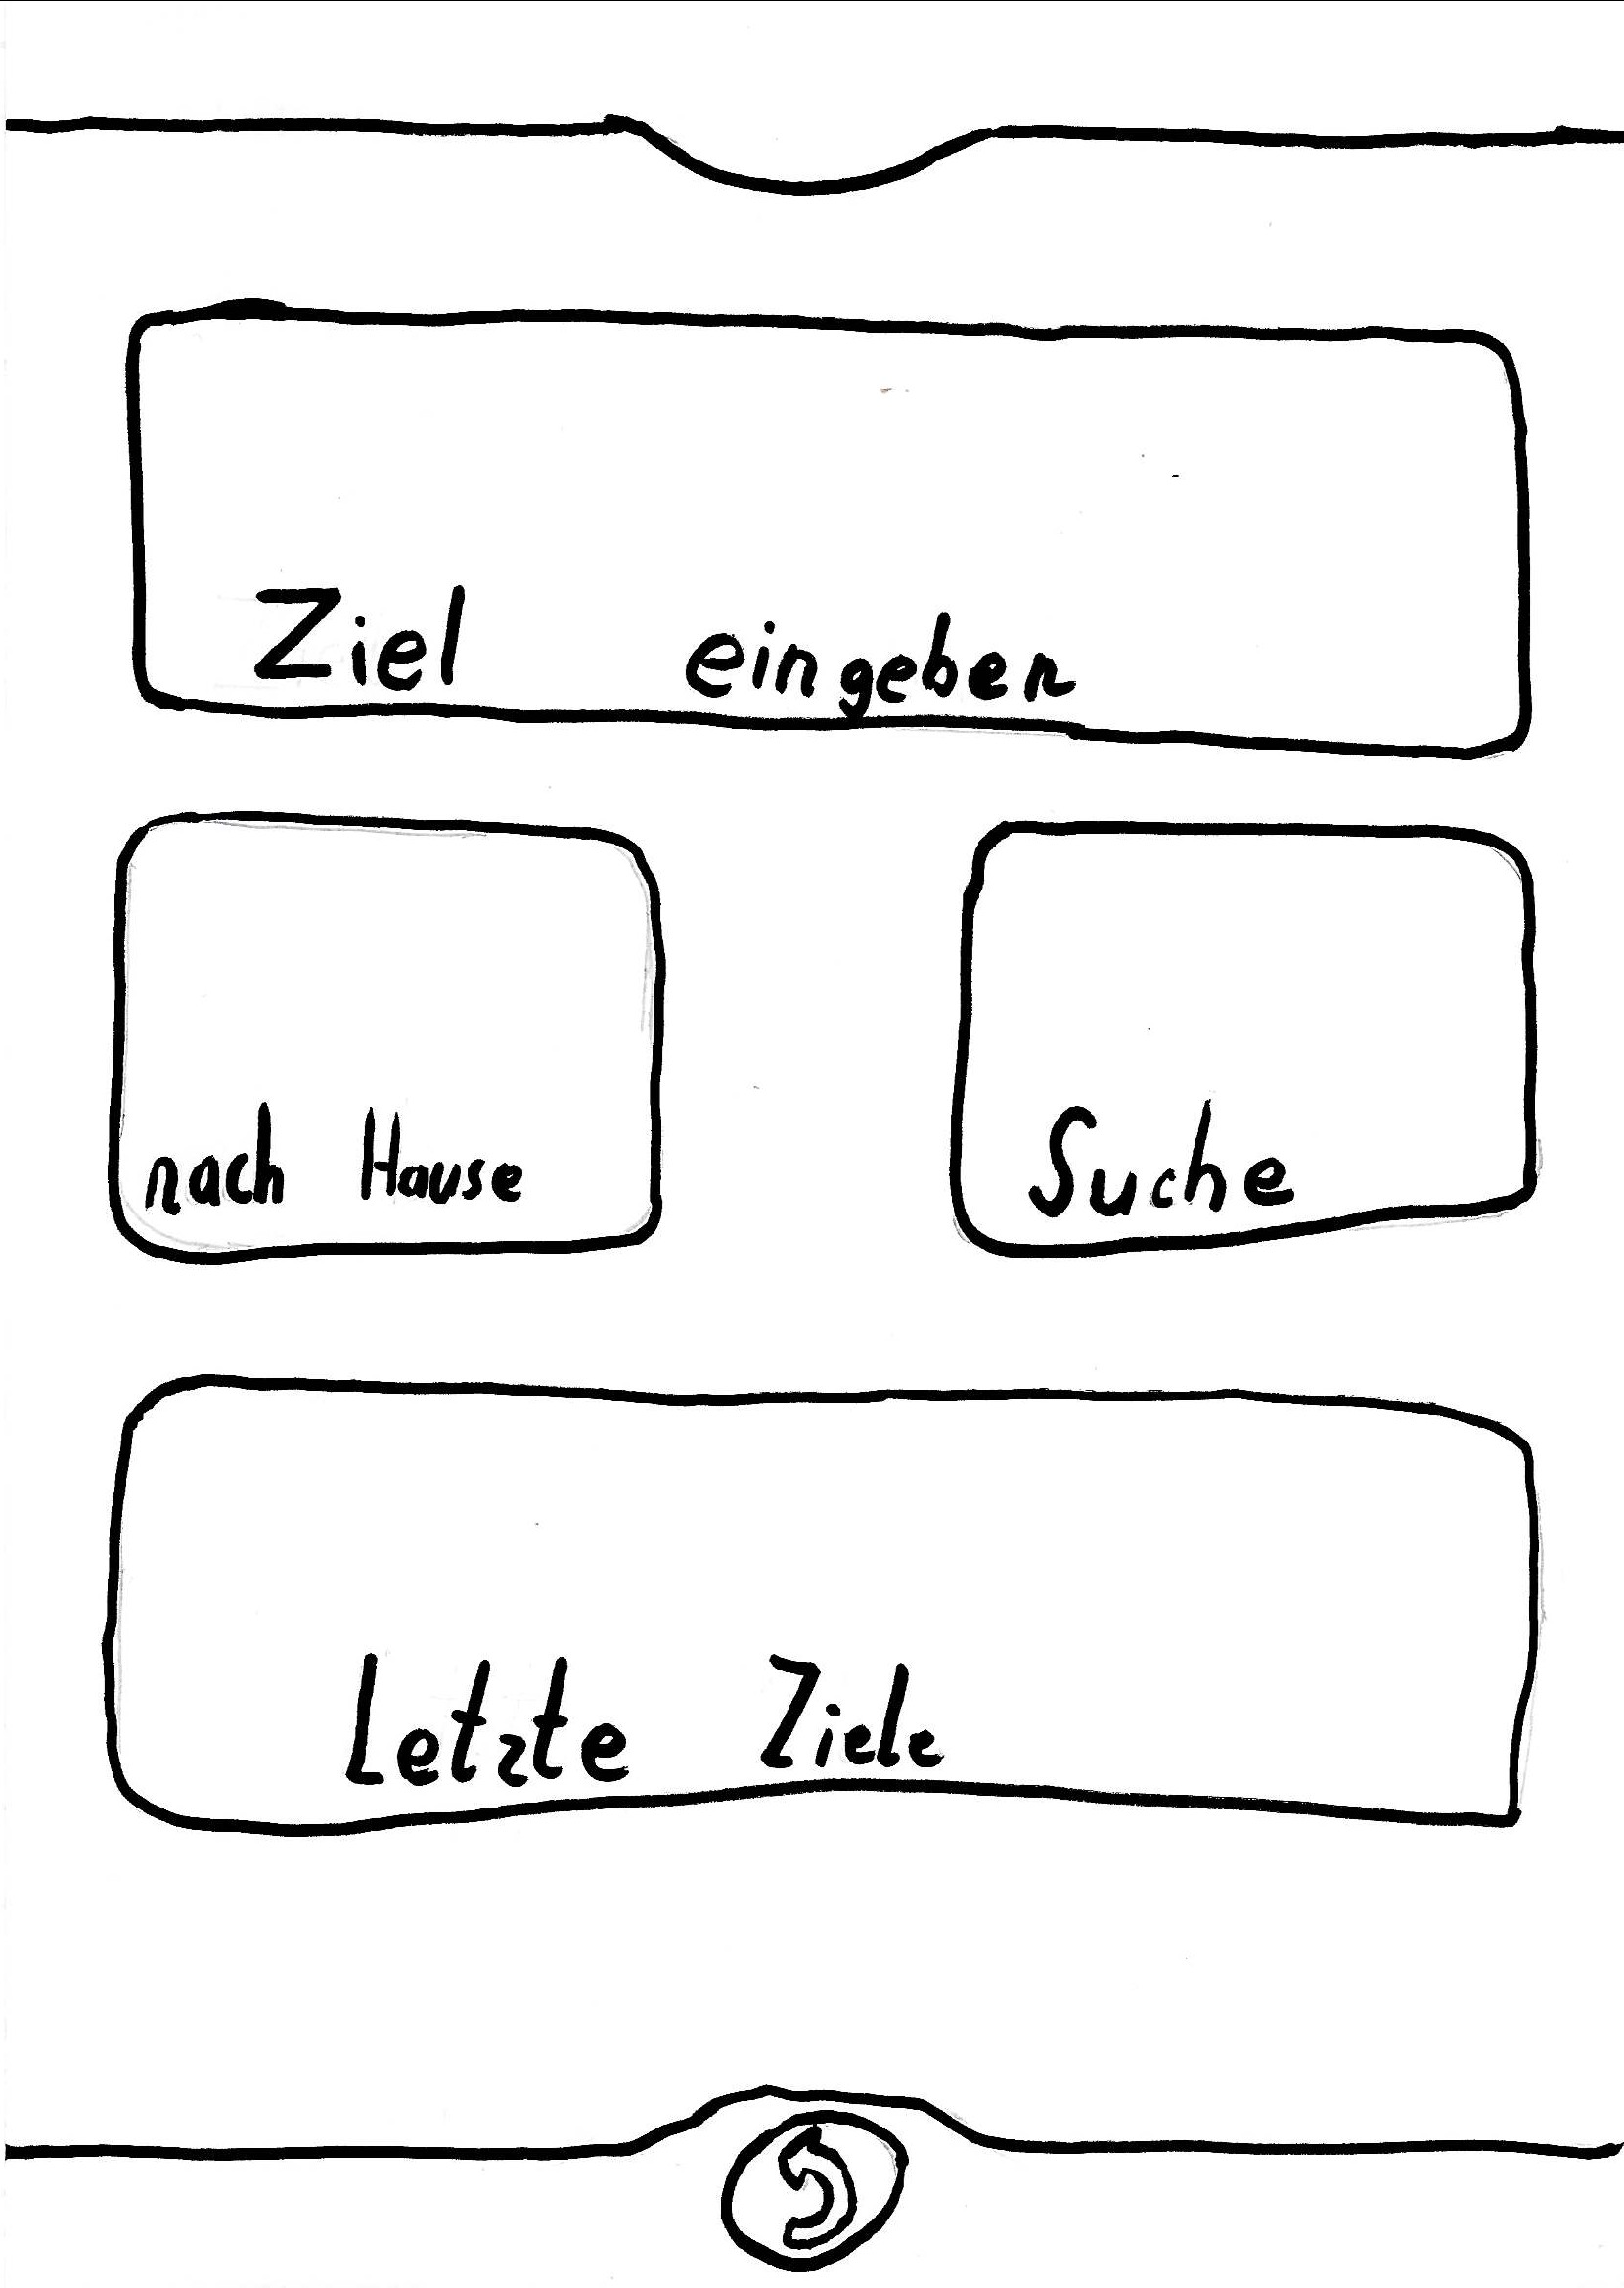 Ziel eingeben
nach Hause
Suche
Letzte Ziele